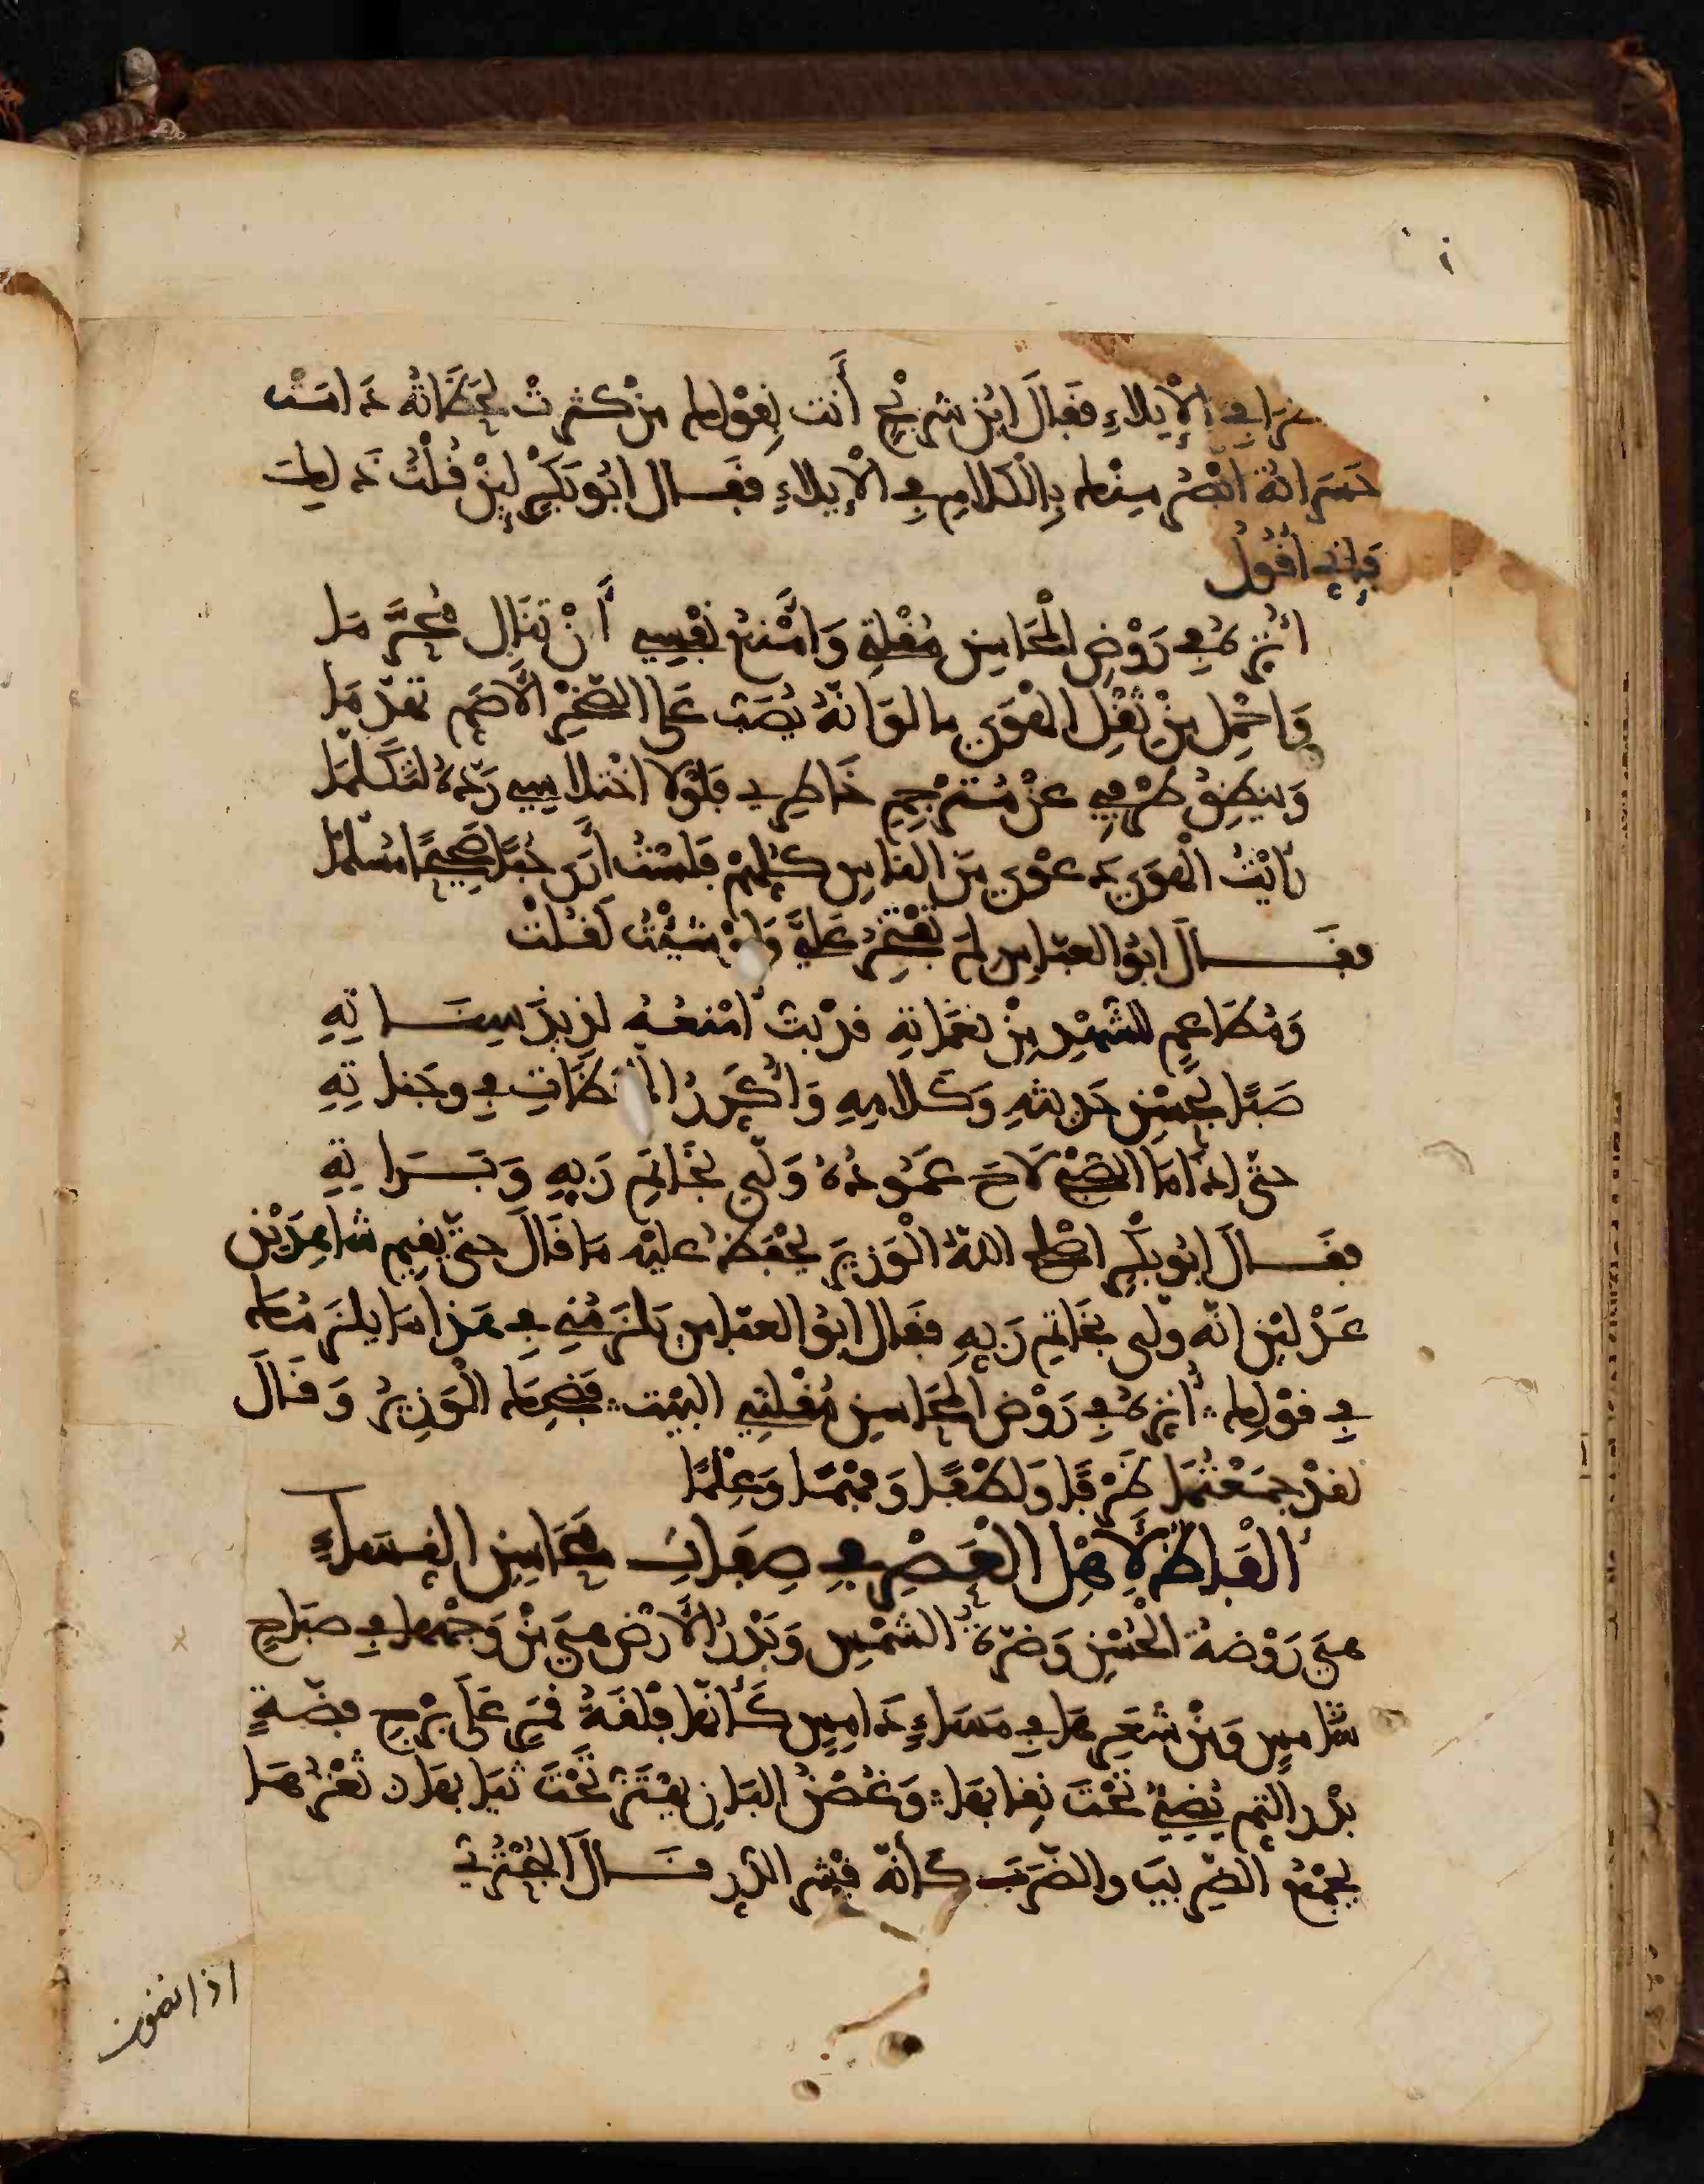 في الإيلاء فقال ابن سريج أنت بقولك من كثرت لحظاته دامت
حسراته أبصر منك بالكلام في الإيلاء فقال أبو بكر لئن قلت ذلك
فإني أقول
أنزه في روض المحاسن مقلتي وأمنع نفسي أن تنال محرما
وأحمل من ثقل الهوى ما لو أنه يصب على الصخر الأصم تهدما
وينطق طرفي عن مترجم خاطري فلولا اختلاسي رده لتكلما
رأيت الهوى دعوى من الناس كلهم فلست أرى حبا صحيحا مسلما
فقال أبو العباس لم تفتخر علي ولو شئت لقلت
ومطاعم للشهد من نغماته قد بت أمنعه لذيذ سناته
صبا بحسن حديثه وكلامه وأكرر اللحظات في وجناته
حتى إذا ما الصبح لاح عموده ولى بخاتم ربه وبراته
فقال أبو بكر أصلح الله الوزير يحفظ عليه ما قال حتى يقيم شاهدين
عدلين أنه ولى بخاتم ربه فقال أبو العباس يلزمني في هذا ما يلزمك
في قولك أنزه في روض المحاسن مقلتي البيت فضحك الوزير وقال
لقد جمعتما ظرفا ولطفا وفهما وعلما
ألفاظ لأهل العصر في صفات محاسن النساء
هي روضة الحسن وضرة الشمس وبدر الأرض هي من وجهها في صباح
شامس ومن شعرها في مساء دامس كأنها فلقة قمر على برج فضة
بدر التم يضيء تحت نقابها وغصن البان يهتز تحت ثيابها ثغرها
يجمع الضريب والضرب كأنه نثر الدر قال البحتري
اذا نضون